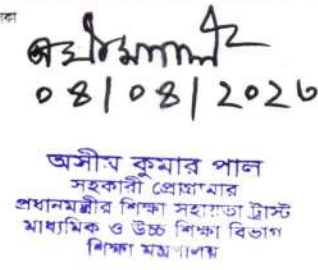 ০৪|০৪|২০২৬
অসীম কুমার পাল
সহকারী প্রোগ্রামার
প্রধানমন্ত্রীর শিক্ষা সহায়তা ট্রাস্ট
মাধ্যমিক ও উচ্চ শিক্ষা বিভাগ
শিক্ষা মন্ত্রণালয়